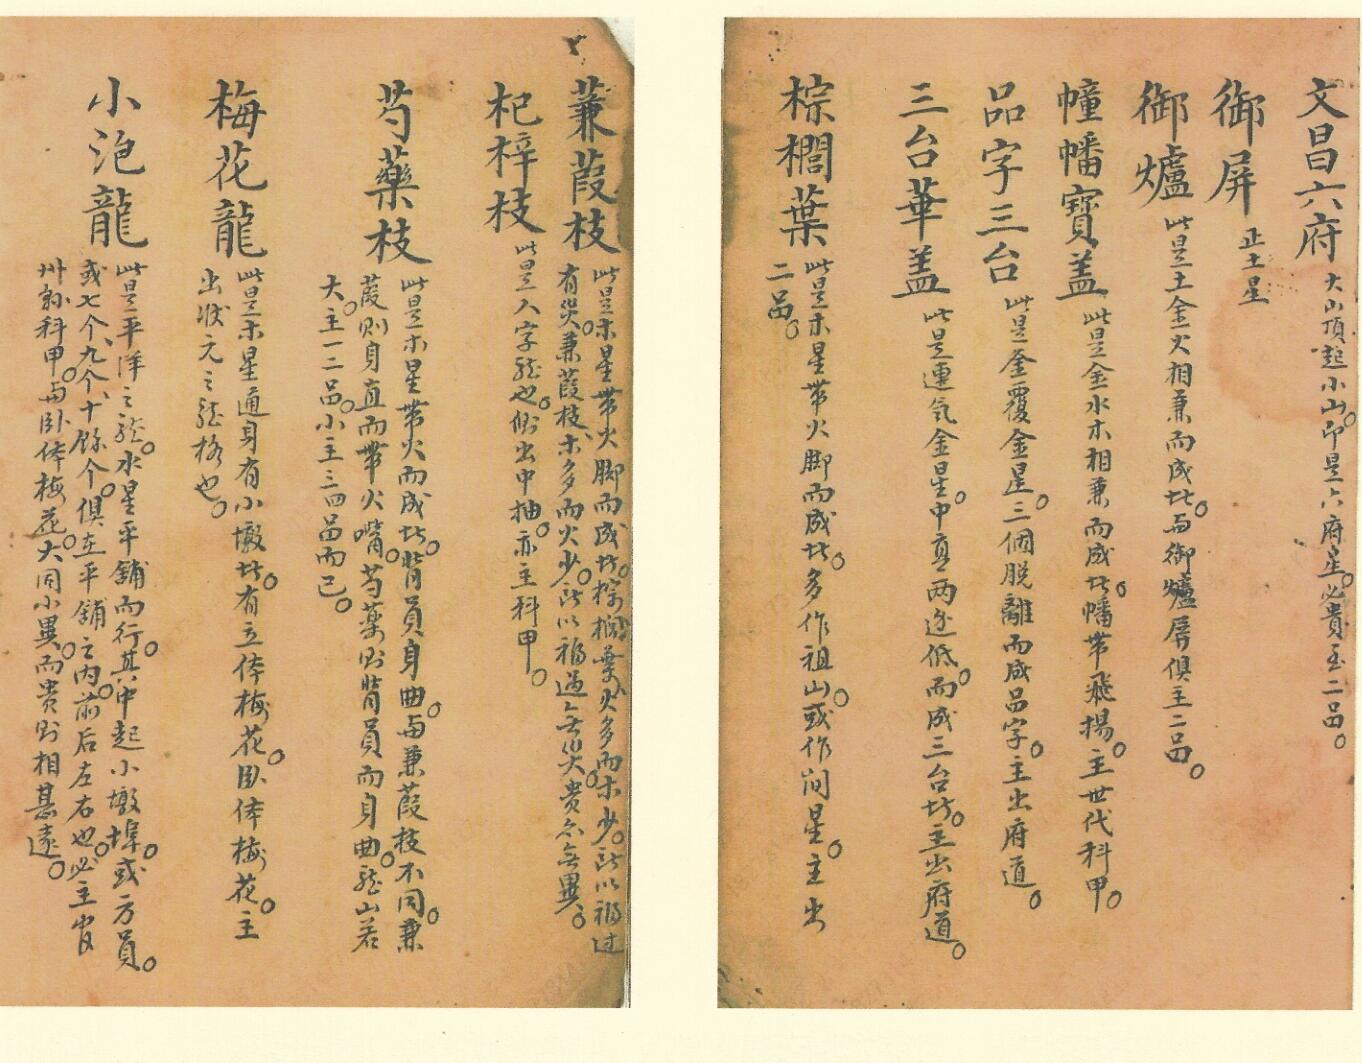 文昌六府 大山頂起小山。即是六府星。必貴至二品。
御屏 正土星
御爐 此是土金火相兼而成此。与御爐屏俱主二品。
幢幡寶蓋 此是金水木相兼而成此。幡带飛揚。主世代科甲。
品字三台 此是金覆金星。三個脫離而成品字。主出府道。
三台華盖 此是連気金星。中高两边低。而成三台坊。主出府道。
棕櫚葉 此是木星带火脚而成此。多作祖山。或作间星。主出
二品。
蒹葭枝 此是木星带火脚而成此。棕榈葉火多而木少。所以福过
有災。蒹葭枝木多而火少。所以福過無災。貴亦無異。
杞梓枝 此是人字龍也。傍出中抽。亦主科甲。
芍藥枝 此是木星带火而成此。背員身曲。与蒹葭枝不同。蒹
葭則身直而带火嘴。芍藥則背員而身曲。龍山若
大。主一二品。小主三四品而已。
梅花龍 此是木星通身有小墩此。有立体梅花。卧体梅花。主
出狀元之龍格也。
小泡龍 此是平洋之龍。水星平鋪而行。其中起小墩埠。或方員。
或七个、九个、十餘个。俱在平鋪之内。前后左右也。必主官
州縣科甲。与卧体梅花。大同小異。而貴則相甚遠。